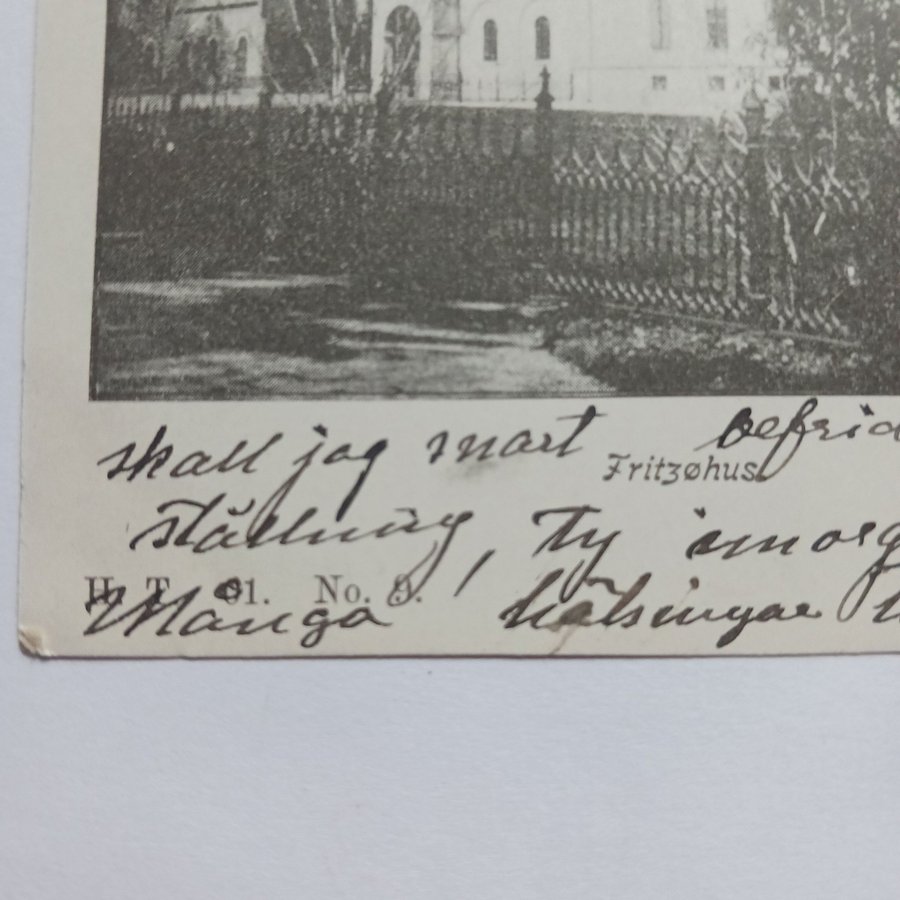 skall jag snart befrid
Fritzøhus.
ställning, Ty imorg
H. T. 01. No. 9.
Många hälsingar